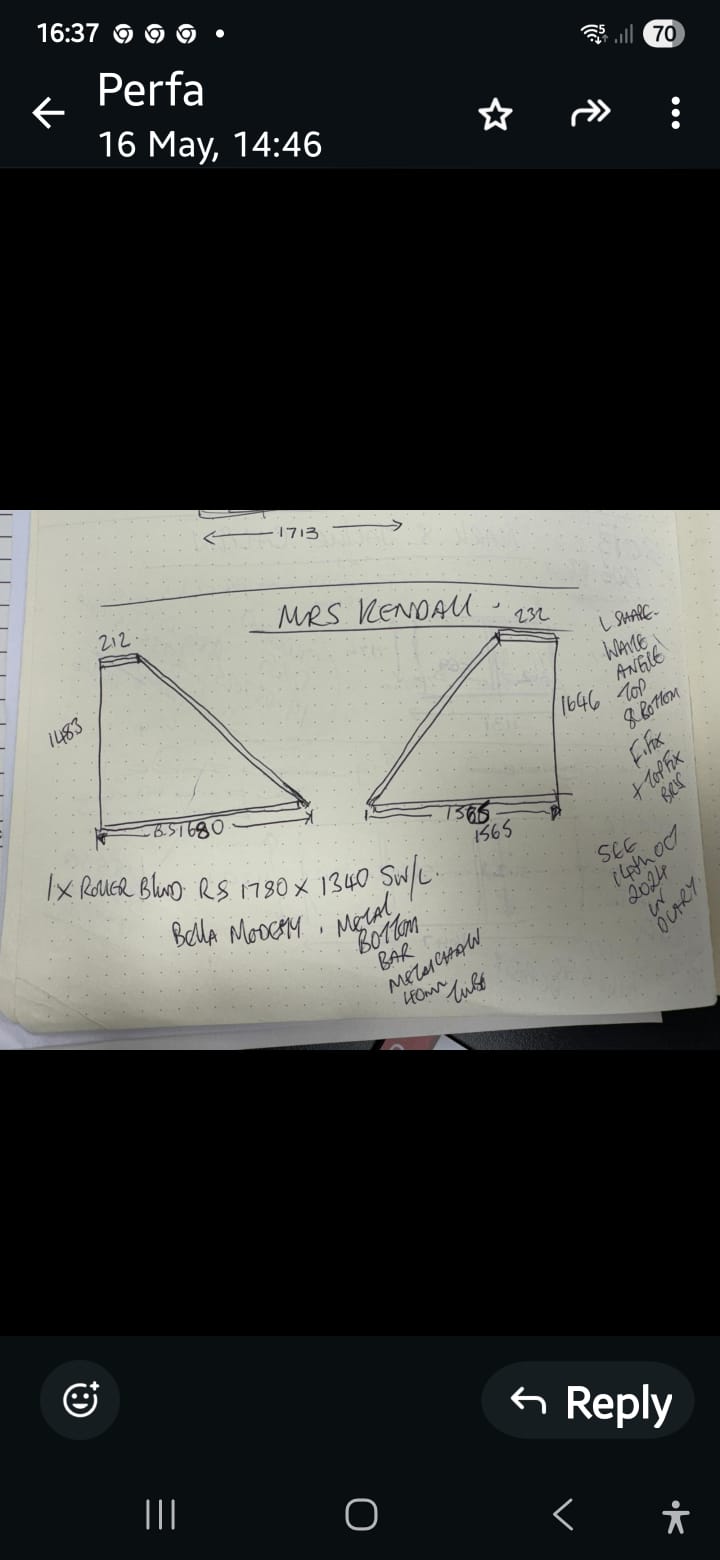 16:37
70
Perfa
16 May, 14:46
1713
MRS KENDALL
212
232
1483
1646
L SHAPE
ANGLE
TOP
& BOTTOM
F.FIX
+ TOP FIX
1680
1565
1565
SEE
2024
IN
DIARY
1X ROLLER BLIND RS 1780 X 1340 SW/L
BELLA . METAL
BOTTOM
BAR
METAL CHAIN
40mm TUBE
Reply